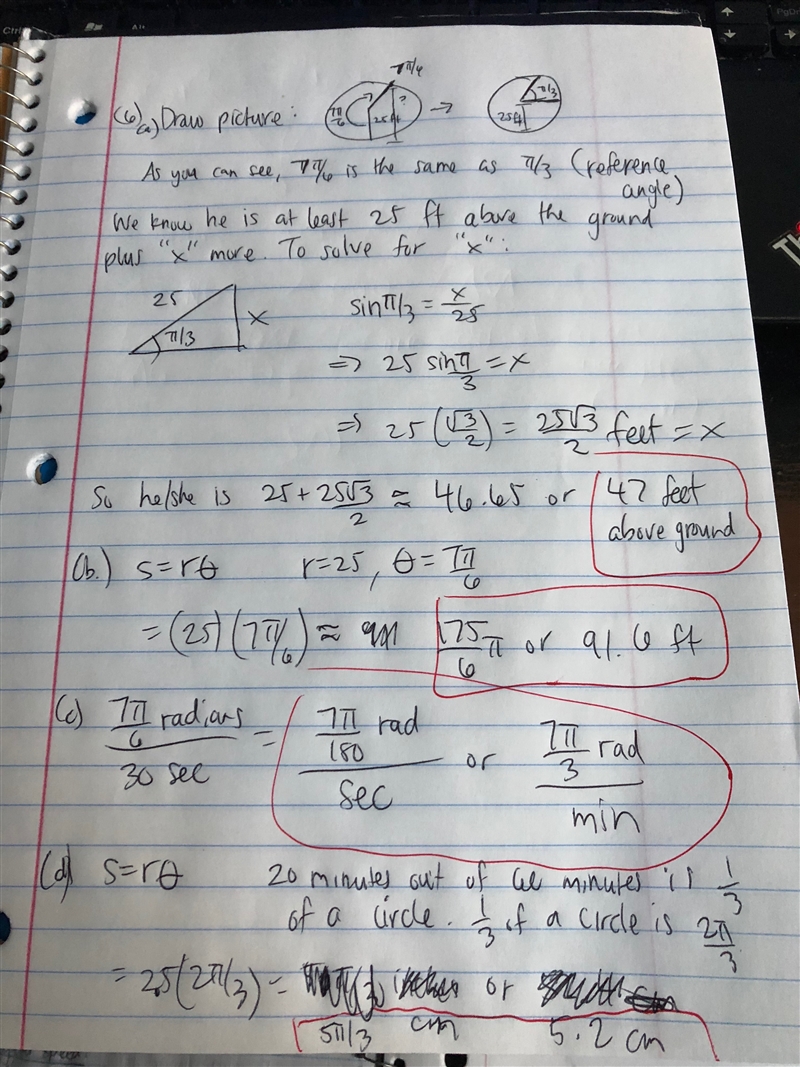 (6)
a) Draw picture: π/6 25ft ? 7π/6 → π/3 25ft
As you can see, 7π/6 is the same as π/3 (reference
angle)
We know he is at least 25 ft above the ground
plus "x" more. To solve for "x":
25 π/3 x sin π/3 = x/25
=> 25 sin π/3 = x
=> 25 (√3/2) = 25√3/2 feet = x
So he/she is 25 + 25√3/2 ≈ 46.65 or 47 feet
above ground
(b.) s=rθ r=25, θ = 7π/6
= (25)(7π/6) ≈ 175/6 π or 91.6 ft
(c) 7π/6 radians / 30 sec = 7π/180 rad / sec or 7π/3 rad / min
(d) s=rθ 20 minutes out of 60 minutes is 1/3
of a circle. 1/3 of a circle is 2π/3
= 2.5(2π/3) = or
5π/3 cm 5.2 cm